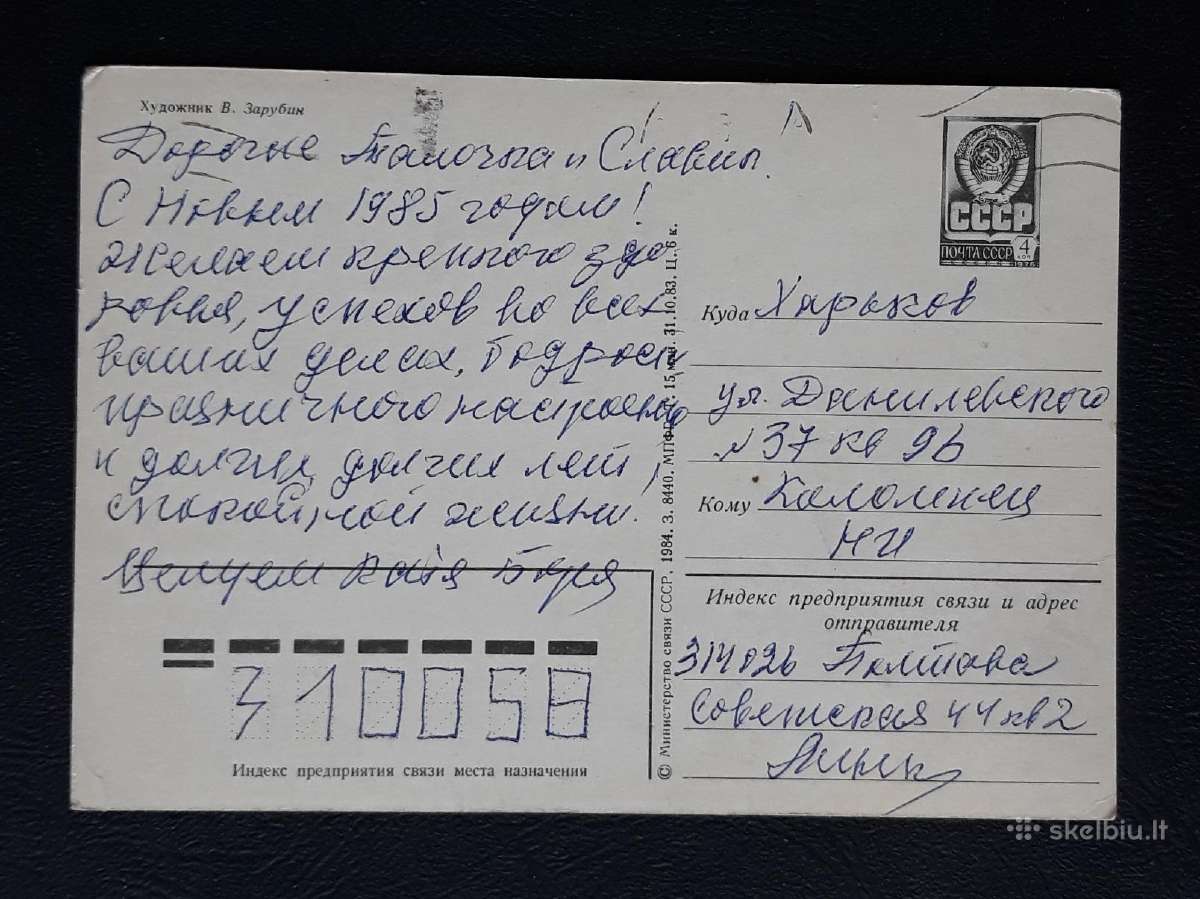 Художник В. Зарубин
Дорогие Талочка и Славик.
С Новым 1985 годом!
Желаем крепкого здо
ровья, успехов во всех
ваших делах, бодрого
праздничного настроения
и долгих, долгих лет
спокойной жизни.
Целуем Катя Боря
310058
Индекс предприятия связи места назначения
© Министерство связи СССР, 1984. З. 8440. МПФГ. 15 млн. 31.10.83. Ц. 6 к.
СССР
ПОЧТА СССР 4 коп
1976
Куда Харьков
ул. Данилевского
№ 37 кв 96
Кому Коломиец
НИ
Индекс предприятия связи и адрес
отправителя
314026 Полтава
Советская 44 кв 2
skelbiu.lt